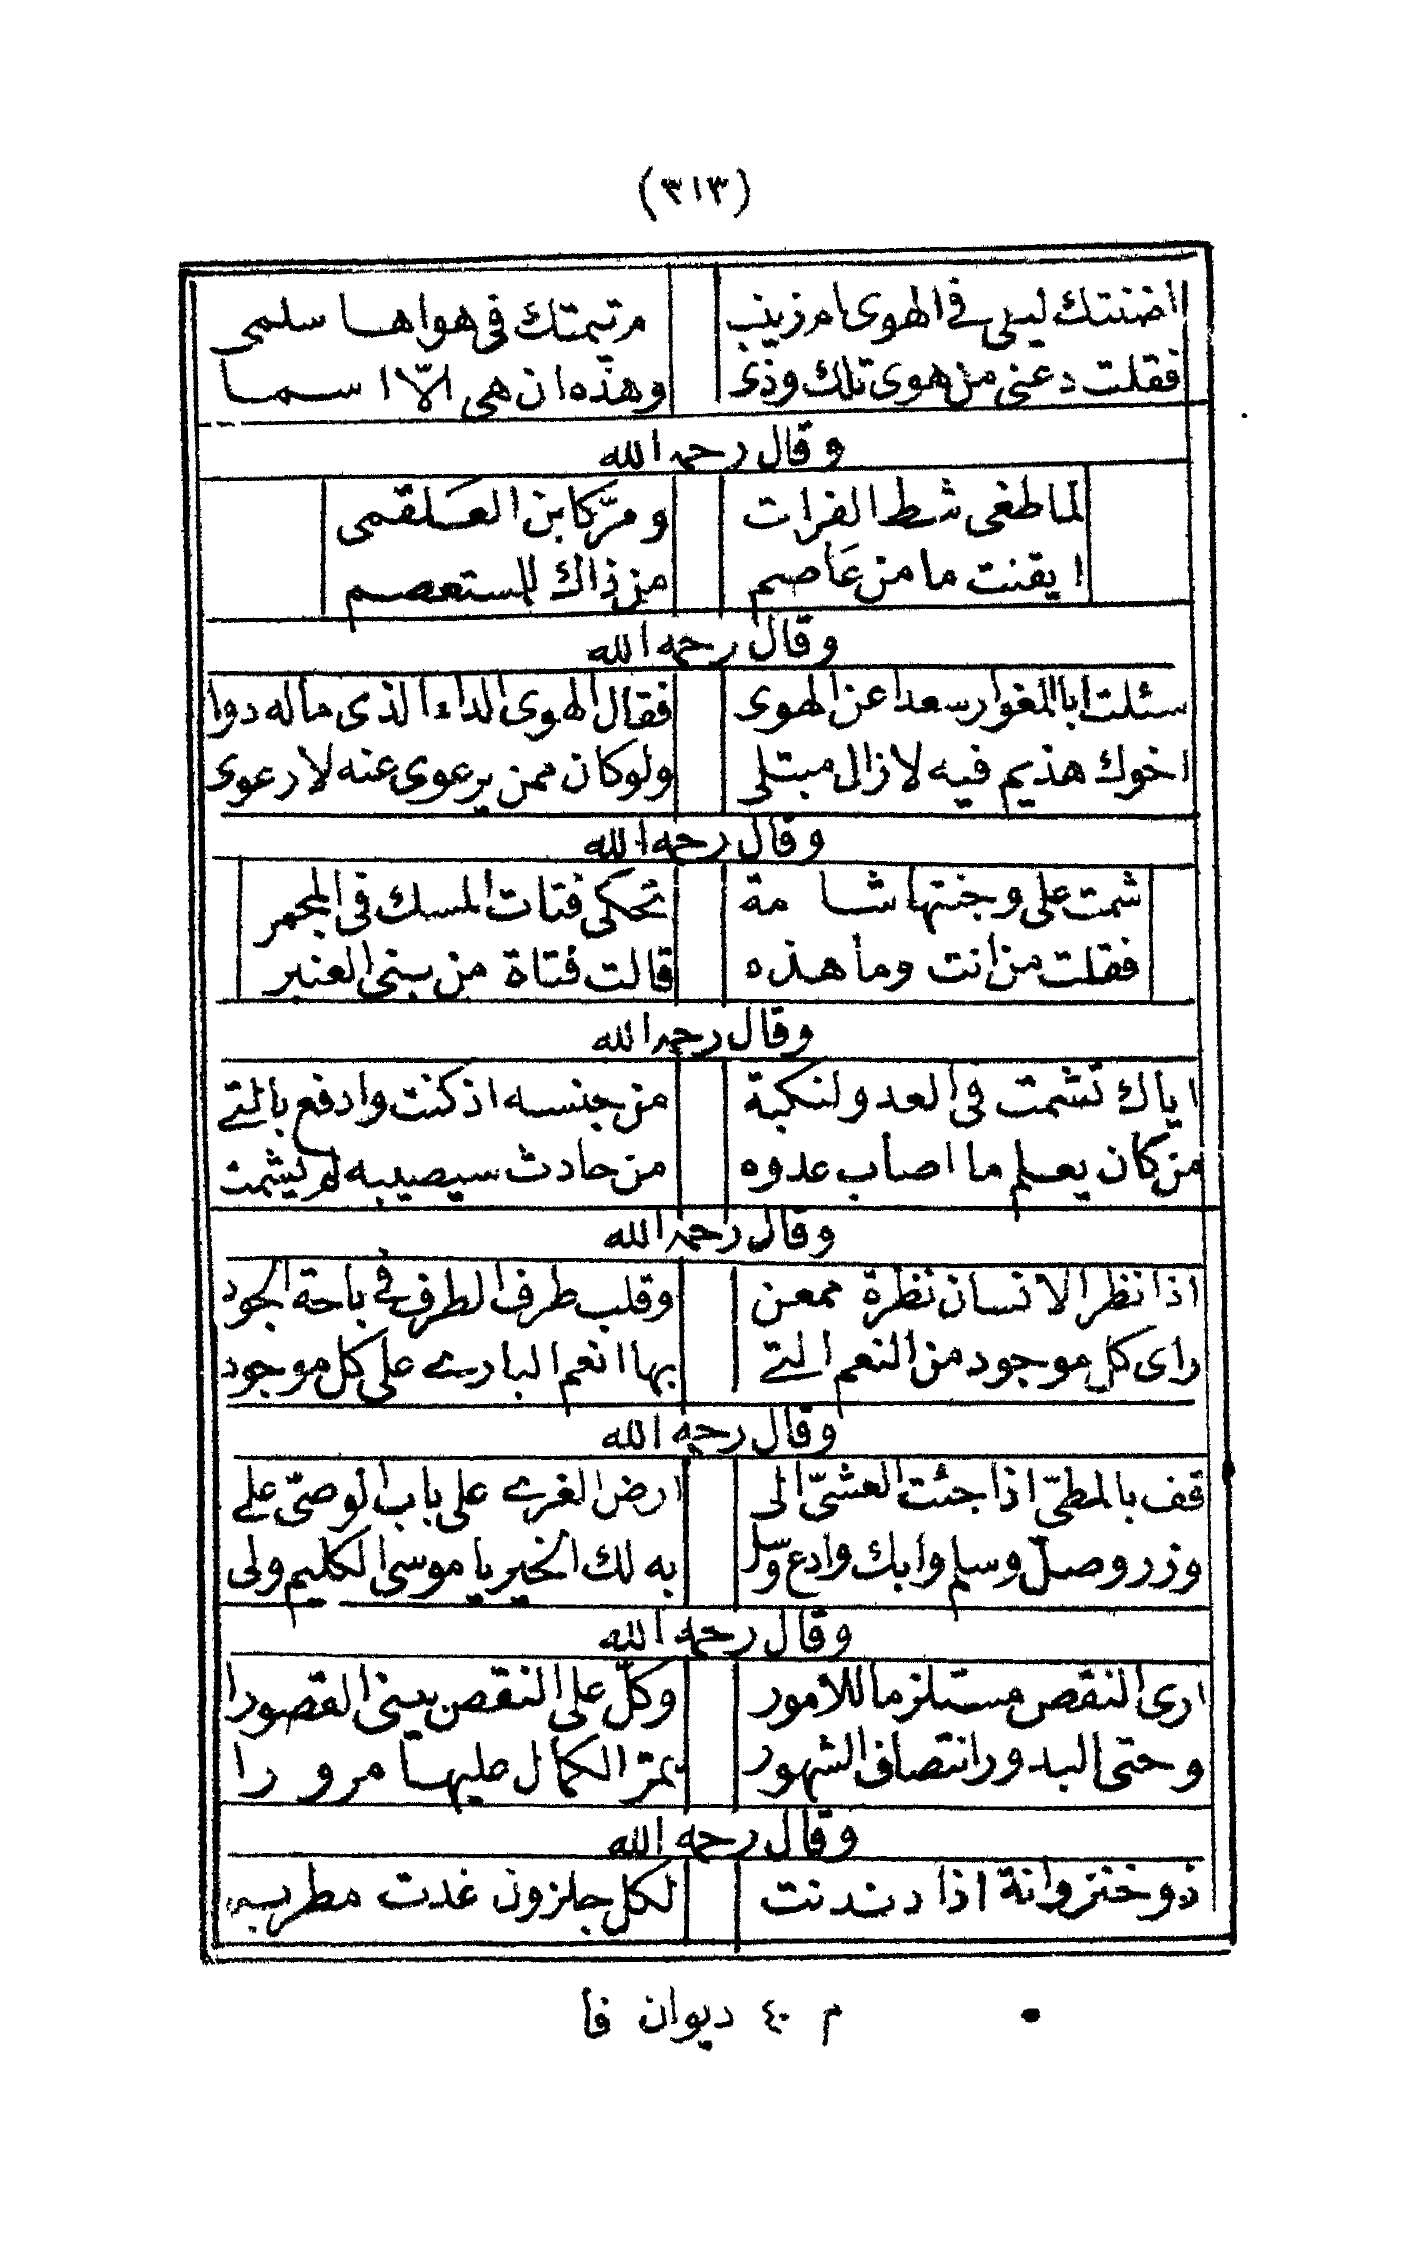 (٣١٣)
ااضنتك ليلى في الهوى ام زينب متيمتك في هواها سلمى
فقلت دعني من هوى تلك وذى وهذه ان هي الّا اسما
وقال رحمه الله
لما طغى شط الفرات ومرّ كابن العلقمى
ايقنت ما من عَاصم من ذاك للمستعصم
وقال رحمه الله
سئلت أبا المغوار سعدا عن الهوى فقال الهوى الداء الذى ما له دوا
اخوك هذيم فيه لا زال مبتلى ولو كان ممن يرعوى عنه لارعوى
وقال رحمه الله
شمت على وجنتها شامة تحكى فتات المسك في المجمر
فقلت من انت وما هذه قالت فتاة من بنى العنبر
وقال رحمه الله
اياك تشمت في العدو لنكبة من جنسه اذ كنت وادفع بالتے
من كان يعلم ما اصاب عدوه من حادث سيصيبه لم يشمت
وقال رحمه الله
اذا نظر الانسان نظرة ممعن وقلب طرف الطرف في باحة الجود
راى كل موجود من النعم التے بها انعم البارے على كل موجود
وقال رحمه الله
قف بالمطىّ اذا جئت العشىّ الى ارض الغرے على باب الوصىّ علے
وزر وصلّ وسلم وابك وادع وسل به لك الخير يا موسى الكليم ولى
وقال رحمه الله
ارى النقص مستلزما للامور وكلّ على النقص يبنى القصورا
وحتى البدور انتصاف الشهور يمرّ الكمال عليها مرورا
وقال رحمه الله
ذو خنزوانة اذا دندنت لكل حلزون غدت مطربه
م ٤٠ ديوان فا